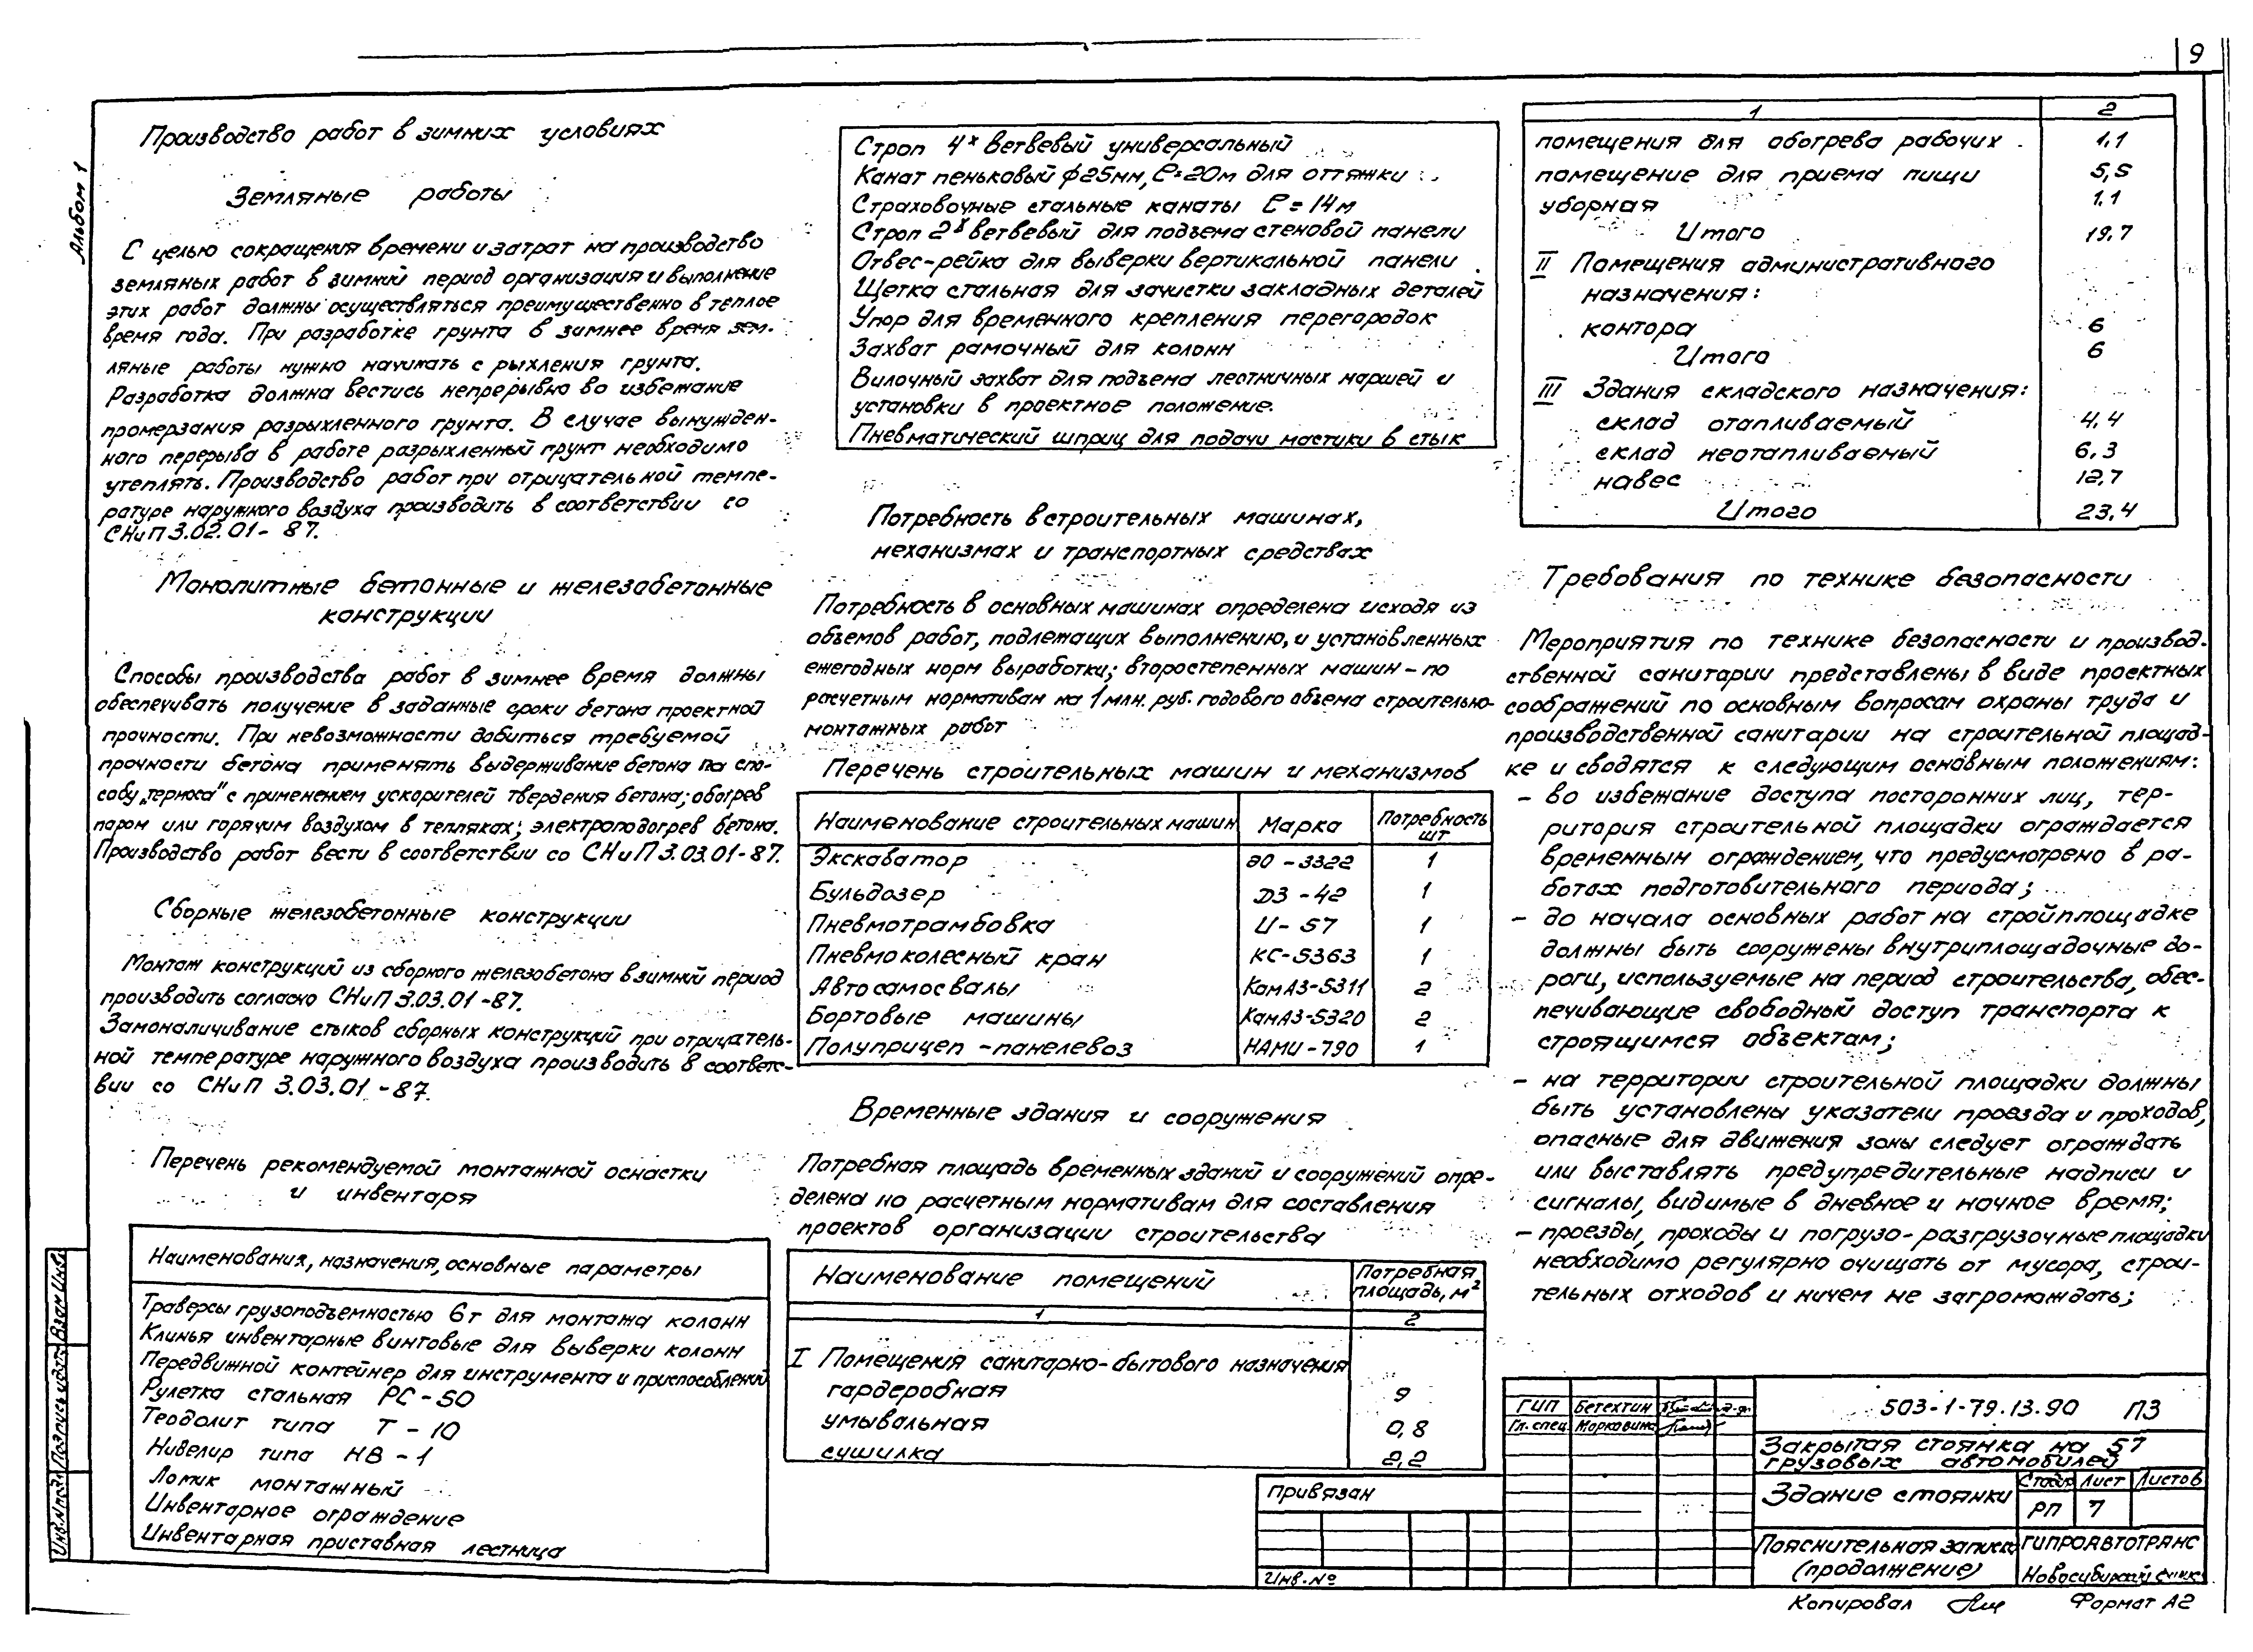 9
Альбом 1
Производство работ в зимних условиях
Земляные работы
С целью сокращения времени и затрат на производство
земляных работ в зимний период организация и выполнение
этих работ должны осуществляться преимущественно в теплое
время года. При разработке грунта в зимнее время зем-
ляные работы нужно начинать с рыхления грунта.
Разработка должна вестись непрерывно во избежание
промерзания разрыхленного грунта. В случае вынужден-
ного перерыва в работе разрыхленный грунт необходимо
утеплять. Производство работ при отрицательной темпе-
ратуре наружного воздуха производить в соответствии со
СНиП 3.02.01-87.
Монолитные бетонные и железабетонные
конструкции
Способы производства работ в зимнее время должны
обеспечивать получение в заданные сроки бетона проектной
прочности. При невозможности добиться требуемой
прочности бетона применять выдерживание бетона по спо-
собу „термоса" с применением ускорителей твердения бетона; обогрев
паром или горячим воздухом в тепляках; электроподогрев бетона.
Производство работ вести в соответствии со СНиП 3.03.01-87.
Сборные железобетонные конструкции
Монтаж конструкций из сборного железобетона в зимний период
производить согласно СНиП 3.03.01-87.
Замоналичивание стыков сборных конструкций при отрицатель-
ной температуре наружного воздуха производить в соответс-
вии со СНиП 3.03.01-87.
Перечень рекомендуемой монтажной оснастки
и инвентаря
Наименования, назначения, основные параметры
Траверсы грузоподъемностью 6т для монтажа колонн
Клинья инвентарные винтовые для выверки колонн
Передвижной контейнер для инструмента и приспособлений
Рулетка стальная РС-50
Теодолит типа Т-10
Нивелир типа НВ-1
Ломик монтажный
Инвентарное ограждение
Инвентарная приставная лестница
Строп 4х ветвевый универсальный
Канат пеньковый ф25мм, ℓ=20м для оттяжки
Страховочные стальные канаты ℓ=14м
Строп 2х ветвевый для подъема стеновой панели
Отвес-рейка для выверки вертикальной панели
Щетка стальная для зачистки закладных деталей
Упор для временного крепления перегородок
Захват рамочный для колонн
Вилочный захват для подъема лестничных маршей и
установки в проектное положение.
Пневматический шприц для подачи мастики в стык
Потребность в строительных машинах,
механизмах и транспортных средствах
Потребность в основных машинах определена исходя из
объемов работ, подлежащих выполнению, и установленных
ежегодных норм выработки; второстепенных машин - по
расчетным нормативам на 1 млн. руб. годового объема строительно-
монтажных работ
Перечень строительных машин и механизмов
Наименование строительных машин Марка Потребность
шт
Экскаватор ЭО-3322 1
Бульдозер ДЗ-42 1
Пневмотрамбовка И-57 1
Пневмоколесный кран КС-5363 1
Автосамосвалы КамАЗ-5311 2
Бортовые машины КамАЗ-5320 2
Полуприцеп-панелевоз НАМИ-790 1
Временные здания и сооружения
Потребная площадь временных зданий и сооружений опре-
делена по расчетным нормативам для составления
проектов организации строительства
Наименование помещений Потребная
площадь, м²
1 2
I Помещения санитарно-бытового назначения
гардеробная 9
умывальная 0,8
сушилка 2,2
1 2
помещения для обогрева рабочих 1,1
помещение для приема пищи 5,5
уборная 1.1
Итого 19.7
II Помещения административного
назначения:
контора 6
Итого 6
III Здания складского назначения:
склад отапливаемый 4,4
склад неотапливаемый 6,3
навес 12,7
Итого 23,4
Требования по технике безопасности
Мероприятия по технике безопасности и производ-
ственной санитарии представлены в виде проектных
соображений по основным вопросам охраны труда и
производственной санитарии на строительной площад-
ке и сводятся к следующим основным положениям:
- во избежание доступа посторонних лиц, тер-
ритория строительной площадки ограждается
временным ограждением, что предусмотрено в ра-
ботах подготовительного периода;
- до начала основных работ на стройплощадке
должны быть сооружены внутриплощадочные до-
роги, используемые на период строительства, обес-
печивающие свободный доступ транспорта к
строящимся объектам;
- на территории строительной площадки должны
быть установлены указатели проезда и проходов,
опасные для движения зоны следует ограждать
или выставлять предупредительные надписи и
сигналы, видимые в дневное и ночное время;
- проезды, проходы и погрузо-разгрузочные площадки
необходимо регулярно очищать от мусора, строи-
тельных отходов и ничем не загромождать;
ГИП Бетехтин
Гл. спец. Морковина
503-1-79.13.90 ПЗ
Закрытая стоянка на 57
грузовых автомобилей
Здание стоянки
Стадия Лист Листов
РП 7
Пояснительная записка
(продолжение)
ГИПРОАВТОТРАНС
Новосибирский
Привязан
Инв.№
Инв.№подл Подпись и дата Взам Инв.
Копировал
Формат А2